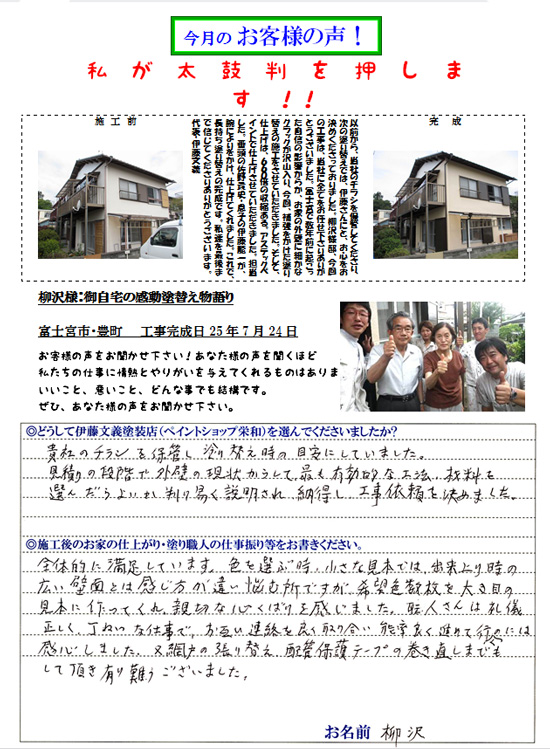 今月のお客様の声！
私が太鼓判を押しま
す！！
施工前
以前から、当社のチラシを保管してくださり、
次の塗り替えでは、伊藤さんにと、お心をお
決めくださっておりました。柳沢様邸、今回
の工事は、当社に全てをお任せ下さりありが
とうございました。富士宮も数年前に起こっ
た自信の影響からか、お家の外壁に細かな
クラックが沢山入り、今回、補強をかけた塗り
替えの施工をさせていただきました。そして、
仕上げは、600倍の収縮ある、アステックペ
イントで仕上げさせていただきました。担当
した、番頭の佐野貴史・息子の伊藤聡一が、
腕によりをかけ、仕上げてくれました。これで、
長持ち塗り替えの完成です。私達を最後ま
で信じてくださりありがとうございます。
代表・伊藤文義
完成
柳沢様：御自宅の感動塗替え物語り
富士宮市・豊町　工事完成日25年7月24日
お客様の声をお聞かせ下さい！あなた様の声を聞くほど
私たちの仕事に情熱とやりがいを与えてくれるものはありま
いいこと、悪いこと、どんな事でも結構です。
ぜひ、あなた様の声をお聞かせ下さい。
◎どうして伊藤文義塗装店（ペイントショップ栄和）を選んでくださいましたか？
貴社のチラシを保管し塗り替え時の目安にしていました。
見積りの段階で外壁の現状からして、最も有効的な工法、材料を
選んだらよいか判り易く説明され、納得し、工事依頼を決めました。
◎施工後のお家の仕上がり・塗り職人の仕事振り等をお書きください。
全体的に満足しています。色を選ぶ時、小さな見本では、出来上り時の
広い壁面とは感じ方が違い悩む所ですが、希望色数枚を大き目の
見本に作ってくれ、親切な心くばりを感じました。職人さんは礼儀
正しく、丁ねいな仕事で、お互い連絡を良く取り合い能率良く進めて行くには
感心しました。又網戸の張り替え、配管保護テープの巻き直しまでも
して頂き有り難うございました。
お名前 柳沢